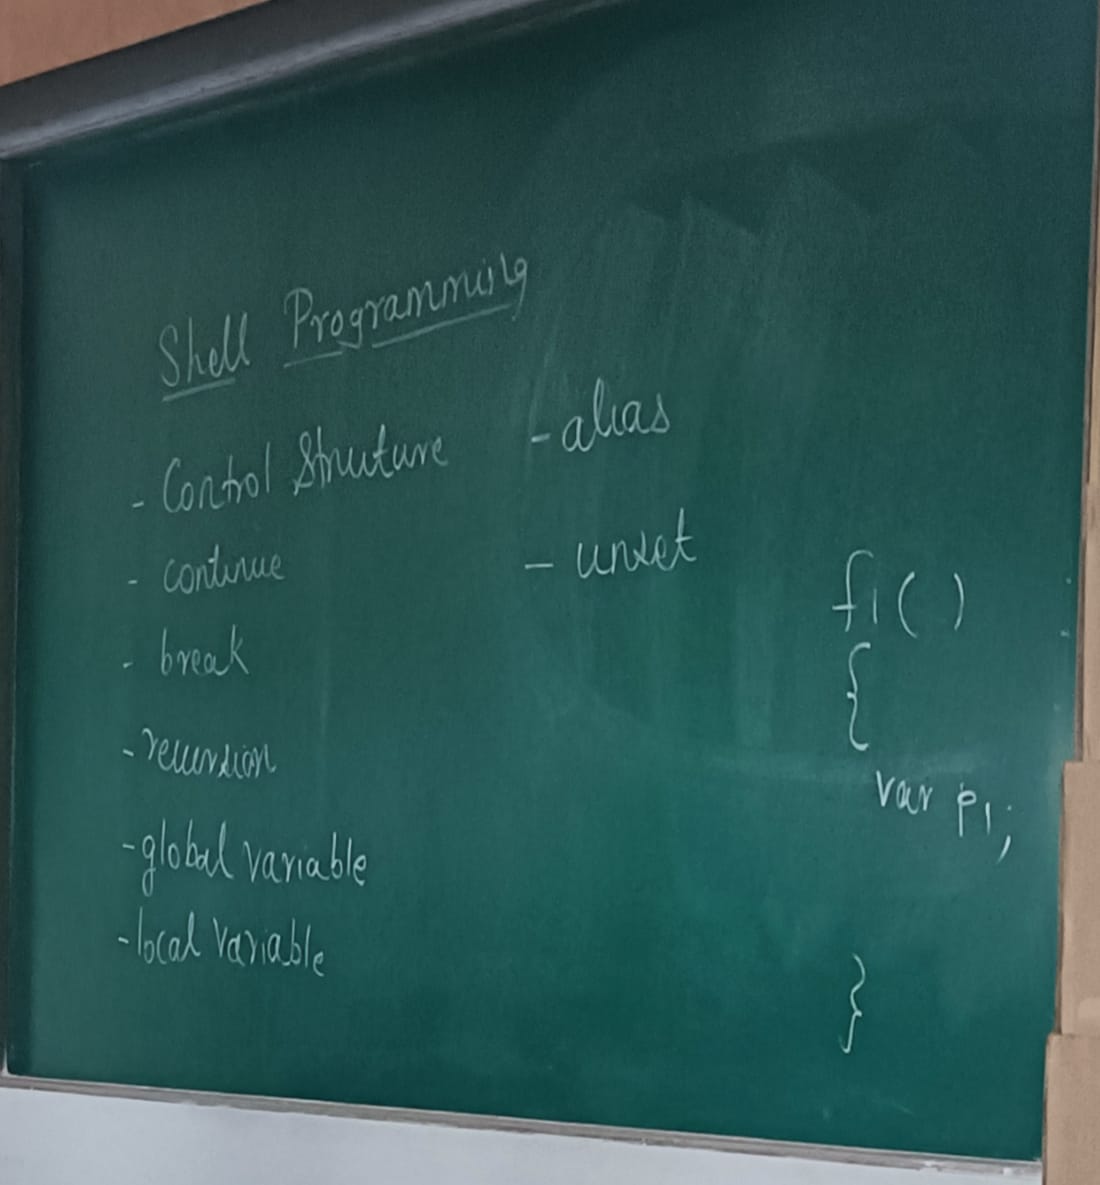 Shell Programming
- Control Struture
- continue
- break
- recursion
- global variable
- local variable
- alias
- unset
f1()
{
var P1;
}